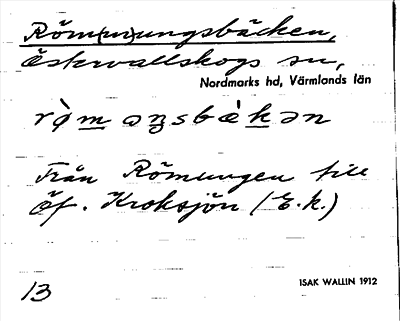 Röm(m)ungsbäcken,
Östervallskogs sn,
Nordmarks hd, Värmlands län
Från Römungen till
Öf. Kroksjön (E.k.)
13
ISAK WALLIN 1912